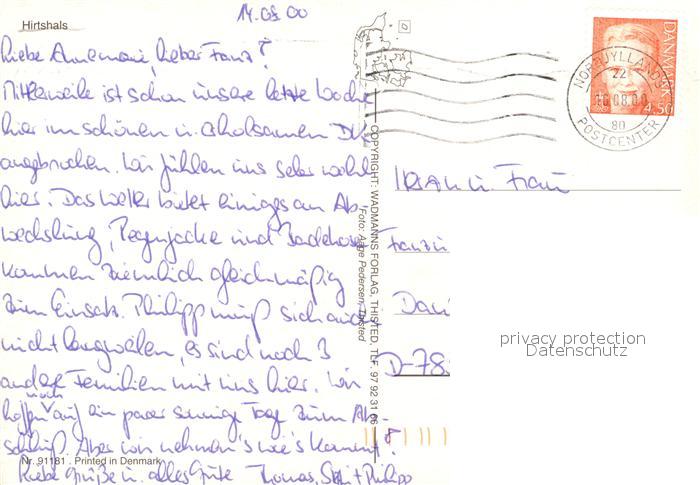 14.08.00
Hirtshals
Liebe Annemarie, lieber Franz!
Mittlerweile ist schon unsere letzte Woche
hier im schönen u. erholsamen DK
angebrochen. Wir fühlen uns sehr wohl
hier. Das Wetter bietet einiges an Ab-
wechslung, Regenjacke und Badehose
kommen ziemlich gleichmäßig
zum Einsatz. Philipp muß sich auch
nicht langweilen, es sind noch 3
andere Familien mit uns hier. Wir
hoffen noch auf ein paar sonnige Tage zum Ab-
schluß. Aber wir nehmen's wie's kommt!
Nr. 91181. Printed in Denmark
Liebe Grüße u. alles Gute Thomas, + Philipp
COPYRIGHT: WADMANNS FORLAG, THISTED, TLF. 97 92 31 06
Foto: Aage Pedersen, Thisted
DANMARK
4.50
NORDJYLLANDS
22
16.08.00
80
POSTCENTER
u. Frau
D-78
privacy protection
Datenschutz